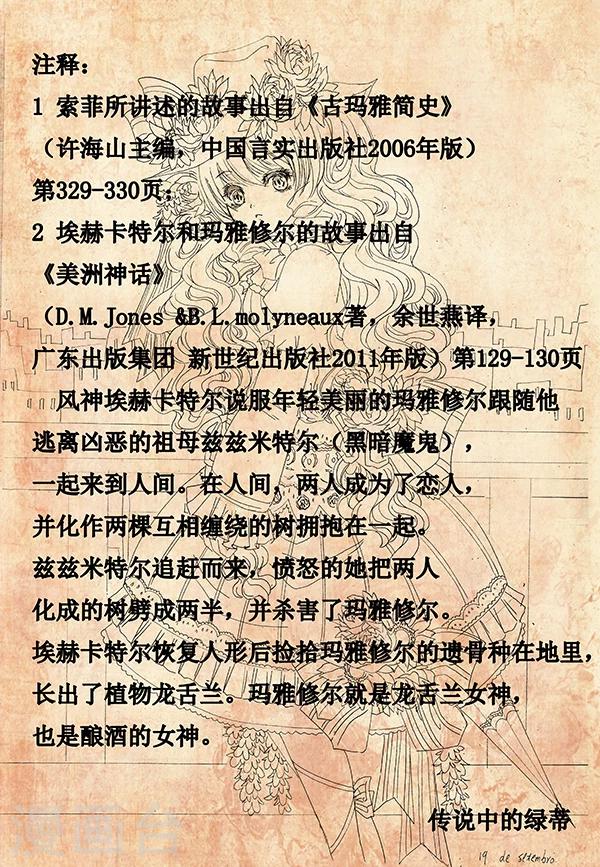 注释：
1 索菲所讲述的故事出自《古玛雅简史》
（许海山主编，中国言实出版社2006年版）
第329-330页；
2 埃赫卡特尔和玛雅修尔的故事出自
《美洲神话》
（D.M.Jones &B.L.molyneaux著，余世燕译，
广东出版集团 新世纪出版社2011年版）第129-130页
风神埃赫卡特尔说服年轻美丽的玛雅修尔跟随他
逃离凶恶的祖母兹兹米特尔（黑暗魔鬼），
一起来到人间。在人间，两人成为了恋人，
并化作两棵互相缠绕的树拥抱在一起。
兹兹米特尔追赶而来，愤怒的她把两人
化成的树劈成两半，并杀害了玛雅修尔。
埃赫卡特尔恢复人形后捡拾玛雅修尔的遗骨种在地里，
长出了植物龙舌兰。玛雅修尔就是龙舌兰女神，
也是酿酒的女神。
传说中的绿蒂
漫画台
19 de setembro